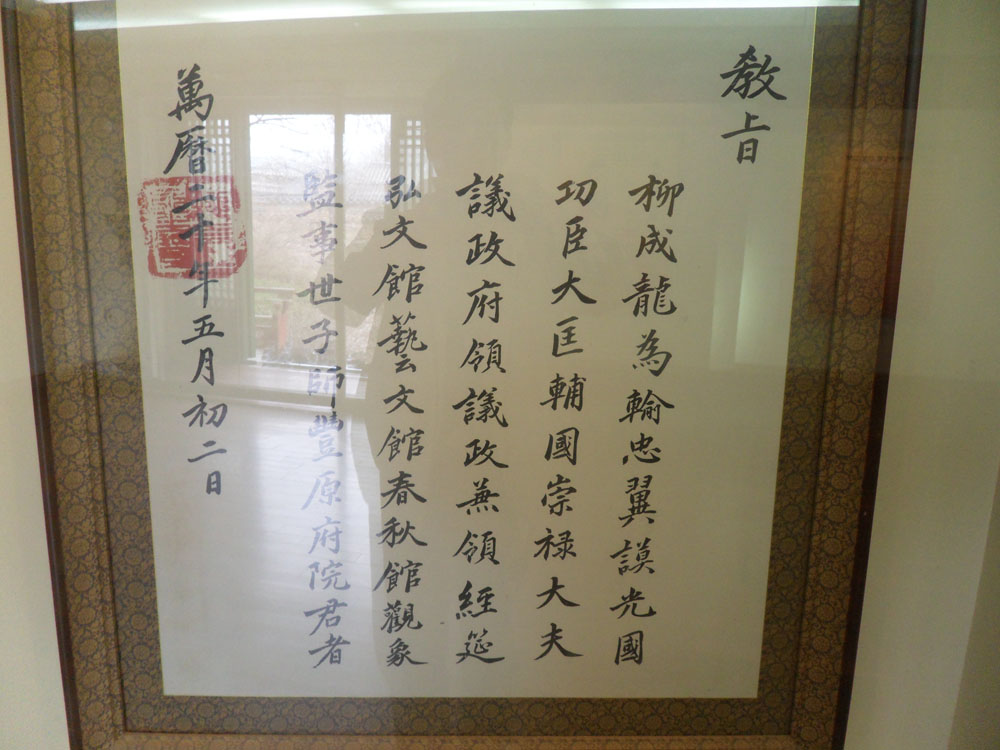 教旨
柳成龍為輸忠翼謨光國
功臣大匡輔國崇禄大夫
議政府領議政兼領經筵
弘文館藝文館春秋館觀象
監事世子師豐原府院君者
萬曆二十年五月初二日